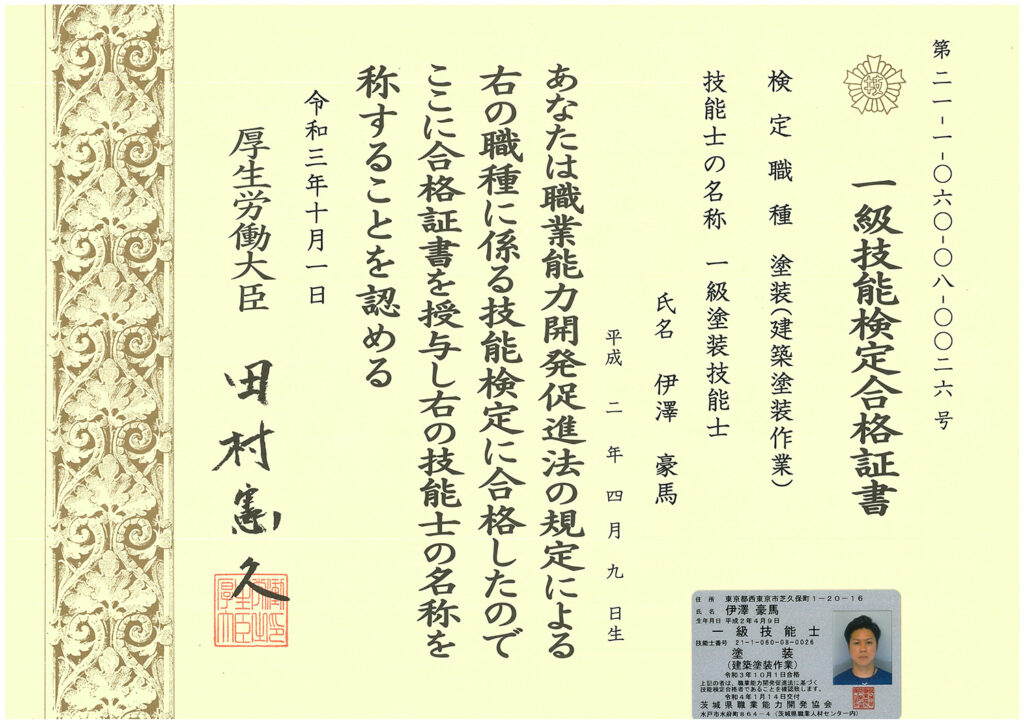 第二一-一-〇六〇-〇八-〇〇二六号
技
一級技能検定合格証書
検定職種 塗装(建築塗装作業)
技能士の名称 一級塗装技能士
氏名 伊澤 豪馬
平成 二 年 四 月 九 日生
あなたは職業能力開発促進法の規定による
右の職種に係る技能検定に合格したので
ここに合格証書を授与し右の技能士の名称を
称することを認める
令和三年十月一日
厚生労働大臣 田村憲久
住所 東京都西東京市芝久保町1-20-16
氏名 伊澤 豪馬
生年月日 平成2年4月9日
一級技能士
技能士番号 21-1-060-08-0026
塗装
(建築塗装作業)
令和3年10月1日合格
上記の者は、職業能力開発促進法に基づく
技能検定合格者であることを確認致します。
令和4年1月14日交付
茨城県職業能力開発協会
水戸市水府町864-4(茨城県職業人材センター内)